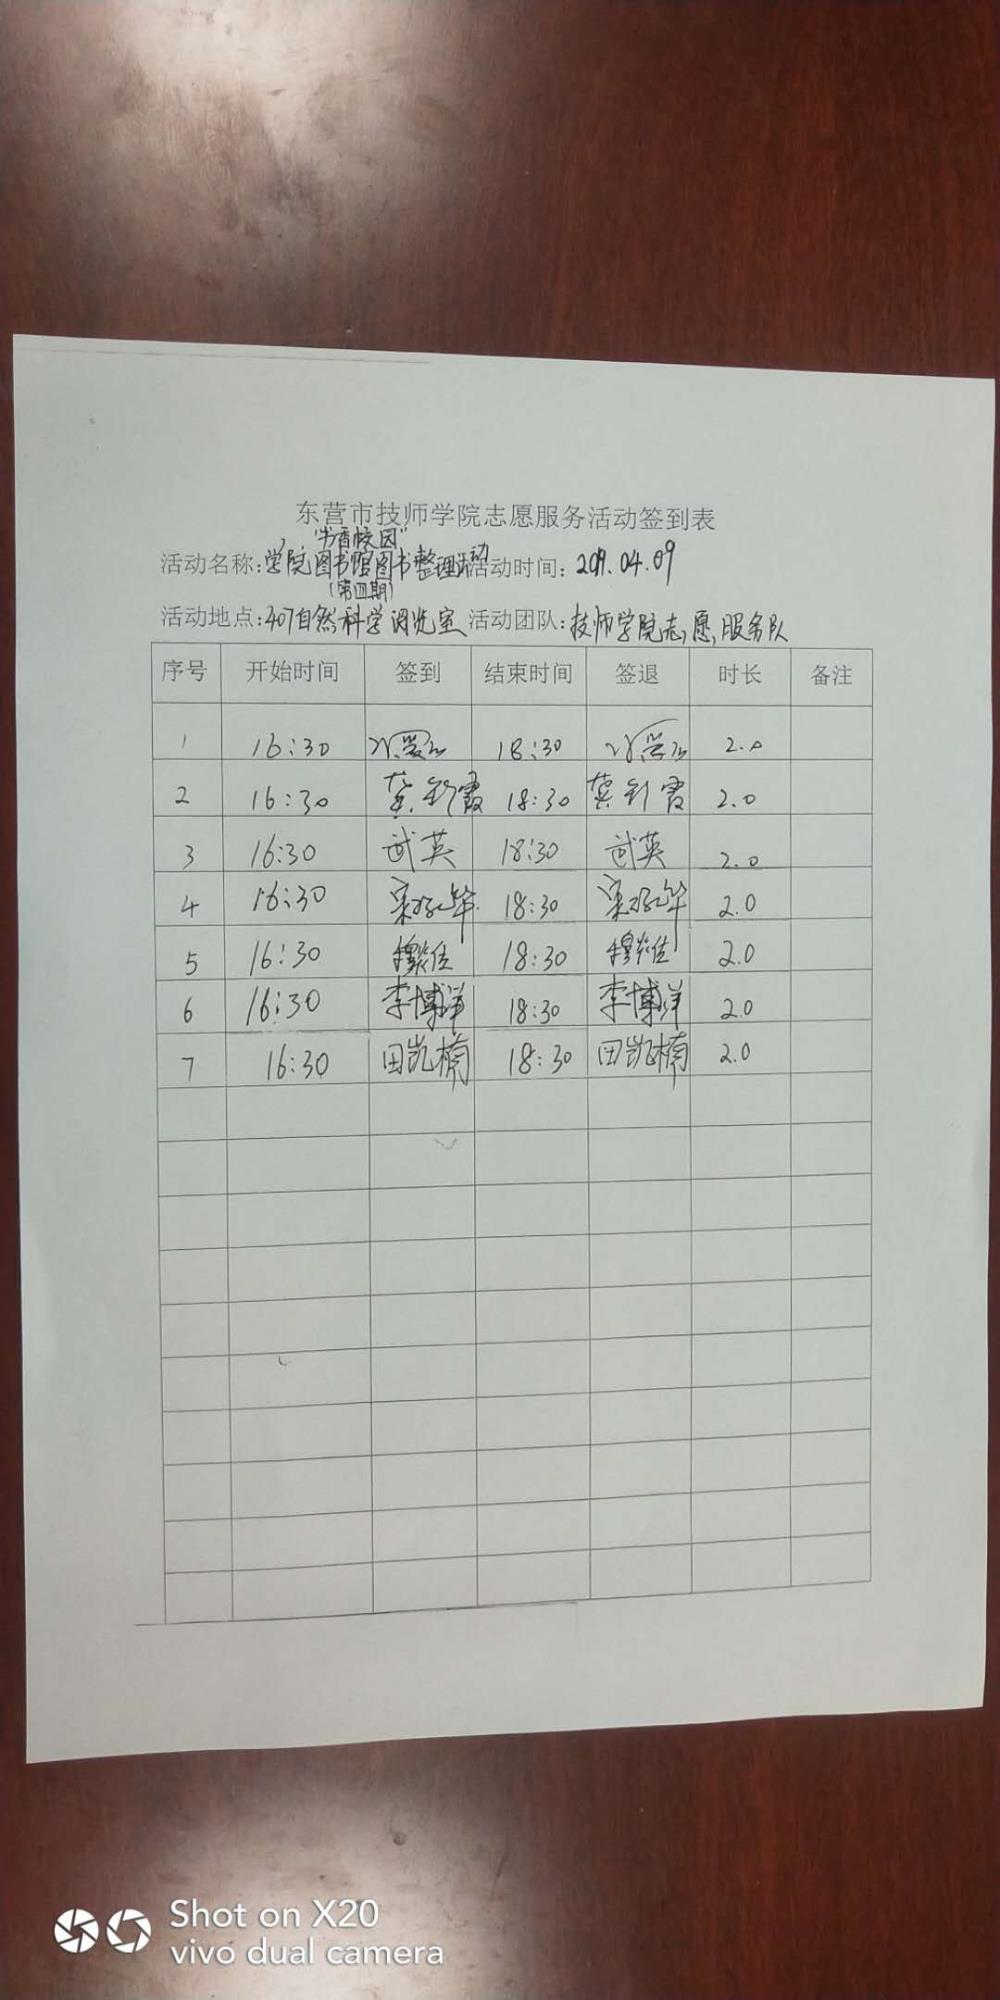 东营市技师学院志愿服务活动签到表
"书香校园"
活动名称:学院图书馆图书整理活动 活动时间: 2019.04.09
(第四期)
活动地点:407自然科学阅览室 活动团队:技师学院志愿服务队
序号 开始时间 签到 结束时间 签退 时长 备注
1 16:30 18:30 2.0
2 16:30 18:30 2.0
3 16:30 武英 18:30 武英 2.0
4 16:30 18:30 2.0
5 16:30 18:30 2.0
6 16:30 李博洋 18:30 李博洋 2.0
7 16:30 田凯楠 18:30 田凯楠 2.0
Shot on X20
vivo dual camera